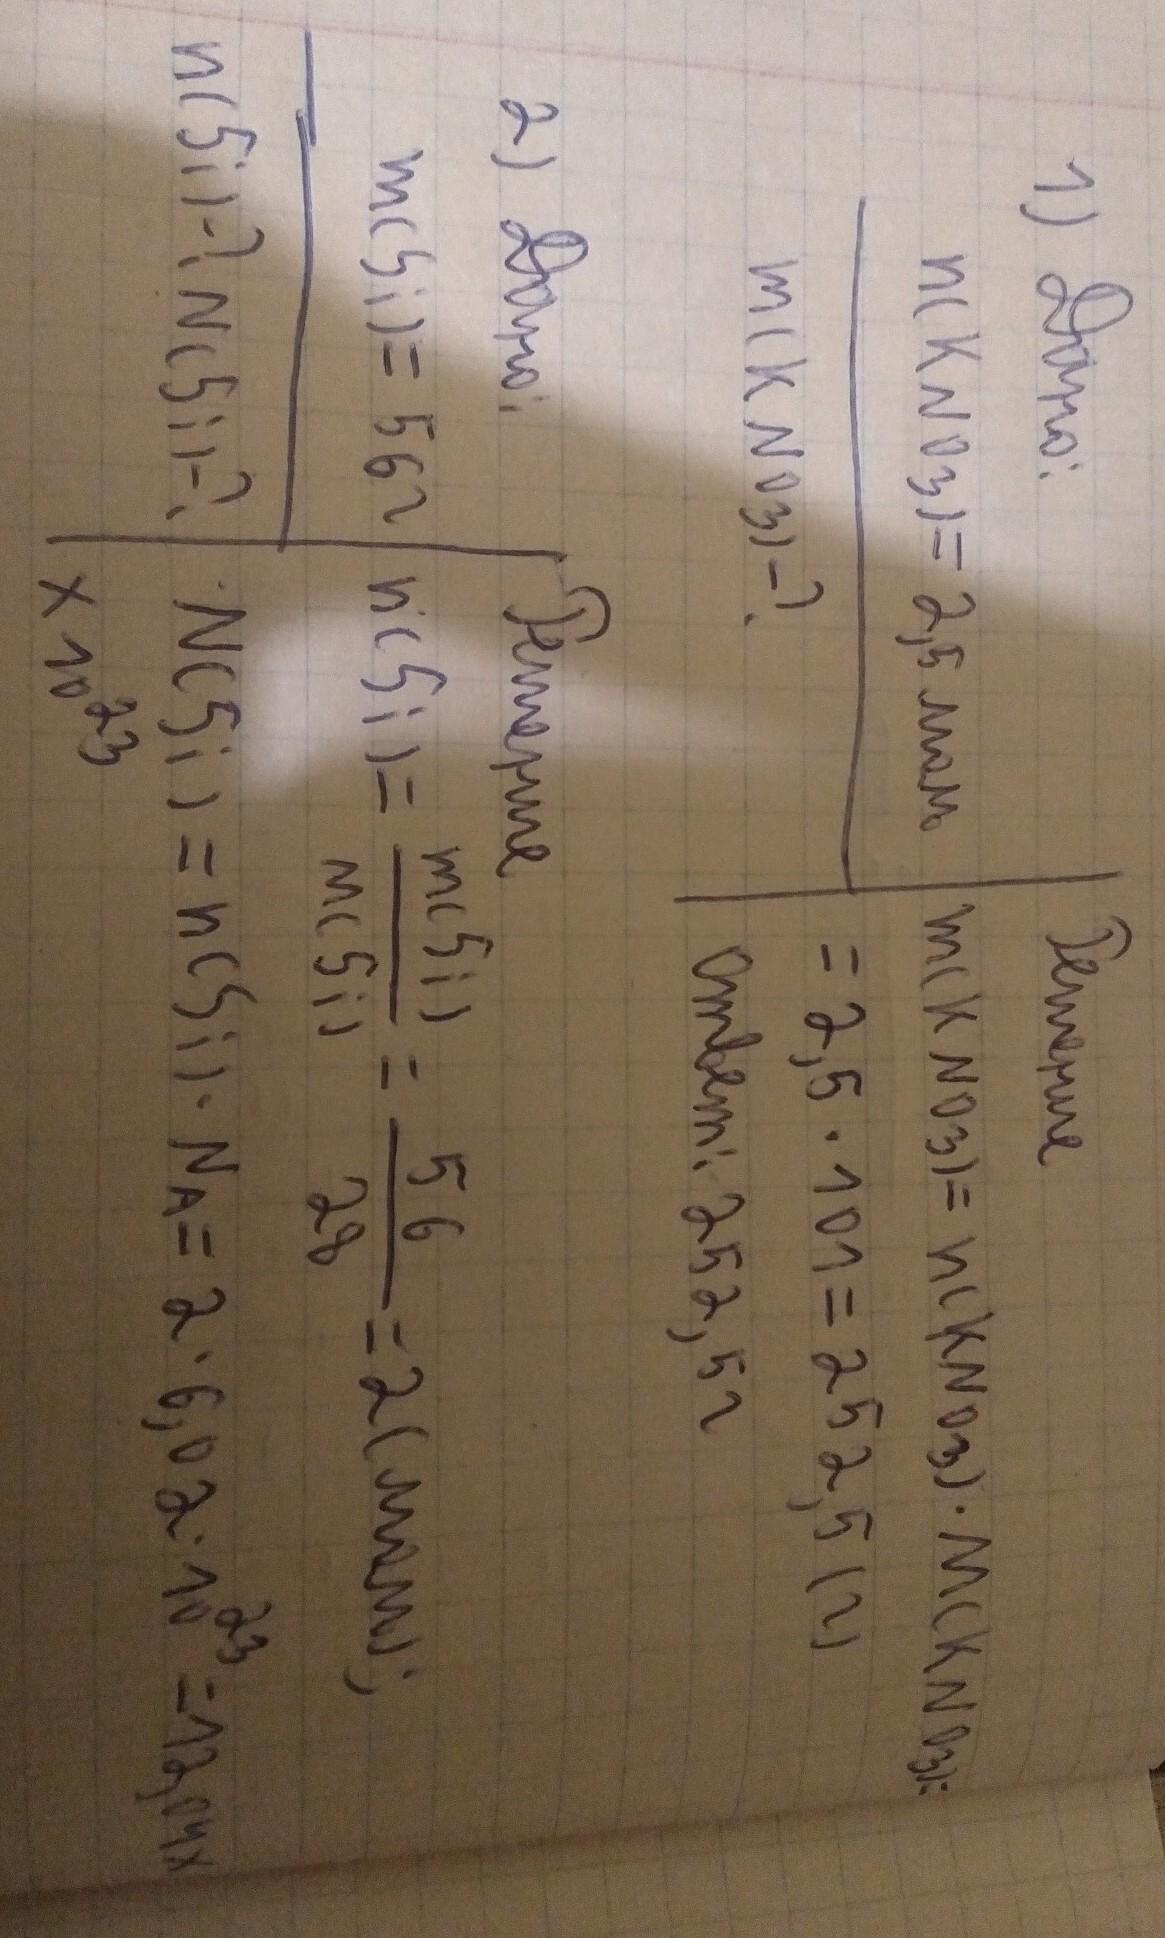 1) Дано:
n(KNO3)= 2,5 моль
m(KNO3)-?
Решение
m(KNO3)= n(KNO3)·M(KNO3)=
= 2,5 · 101 = 252,5 (г)
Ответ: 252,5г
2) Дано:
m(Si)= 56г
n(Si)-? N(Si)-?
Решение
n(Si)= m(Si)/M(Si) = 56/28 = 2(моль);
N(Si)= n(Si)· NA= 2·6,02·10²³=12,04x
x10²³